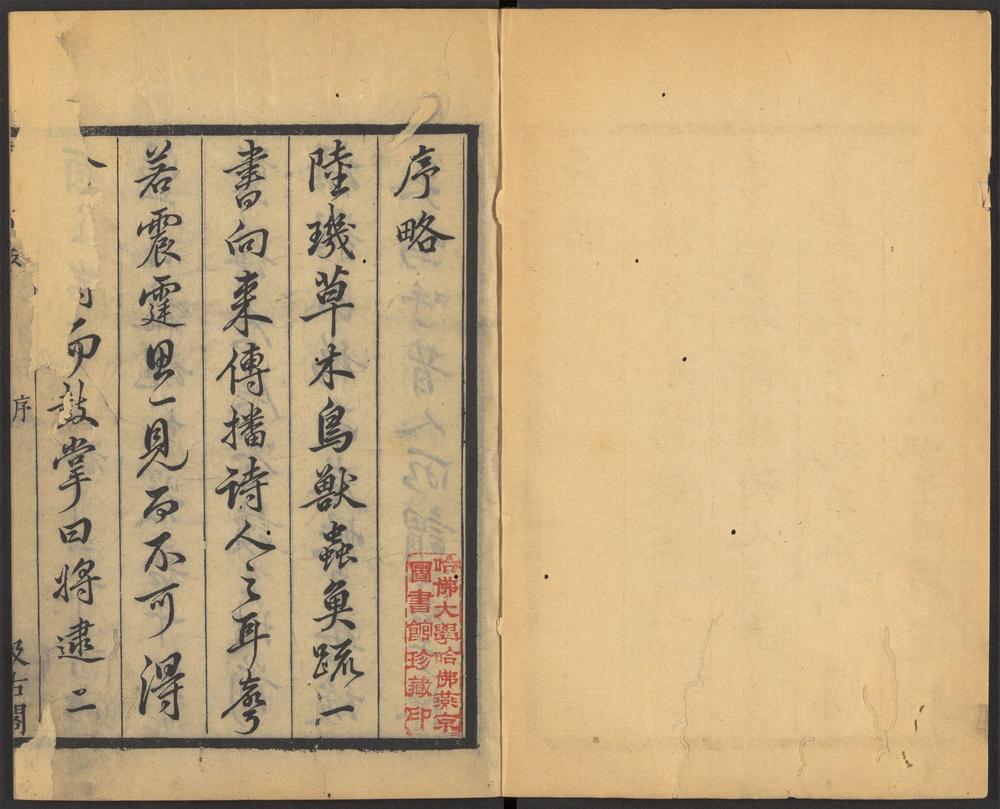 序略
哈佛大學哈佛燕京
圖書館珍藏印
陸璣草木鳥獸蟲魚疏一
書向来傳播詩人之耳
若震霆思一見而不可得
而鼓掌曰將逮二
序
汲古閣